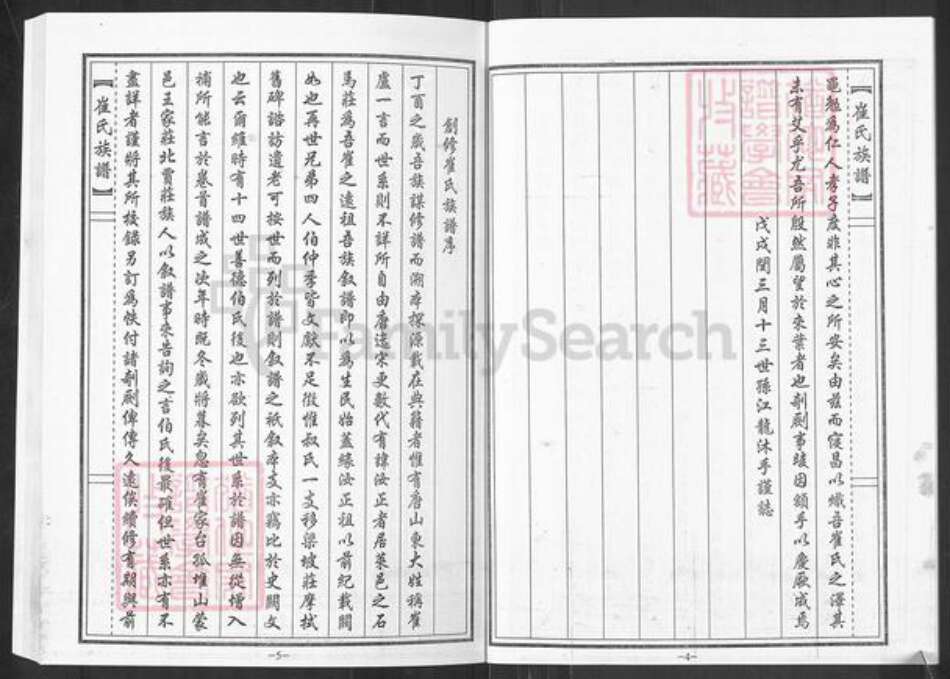 【崔氏族譜】
黽勉為仁人孝子度非其心之所安矣由茲而寖昌以熾吾崔氏之澤其
未有艾乎尤吾所殷然屬望於來葉者也剞劂事竣因額手以慶厥成焉
戊戌閏三月十三世孫江龍沐手謹誌
-4-
創修崔氏族譜序
丁酉之歲吾族謀修譜而溯本探源載在典籍者惟有唐山東大姓稱崔
盧一言而世系則不詳所自由唐迄宋更數代有諱汝正者居萊邑之石
馬莊為吾崔之遠祖吾族叙譜即以為生民始蓋緣汝正祖以前紀載闕
如也再世兄弟四人伯仲季皆文獻不足徵惟叔氏一支移梁坡莊摩拭
舊碑諮訪遺老可按世而列於譜則叙譜之祇叙本支亦竊比於史闕文
也云爾維時有十四世善德伯氏後也亦欲列其世系於譜因無從增入
補所能言於卷首譜成之次年時既冬歲將暮矣忽有崔家台孤堆山蒙
邑王家莊北賈莊族人以叙譜事來告詢之言伯氏後最確但世系亦有不
盡詳者謹將其所按錄另訂為帙付諸剞劂俾傳久遠俟續修有期與前
【崔氏族譜】
-5-
FamilySearch